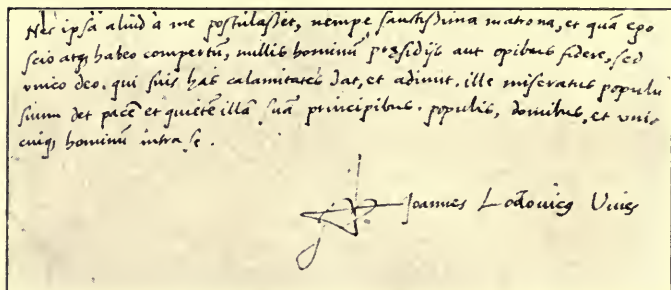 Nec ipsa aliud a me postulasset, nempe sanctissima matrona, et quã ego
scio atq; habeo compertũ, nullis hominũ præsidijs aut opibus fidere, sed
vnico deo. qui suis has calamitates dat, et adimit. ille miseratus populũ
suum det pacẽ et quietẽ illã suã principibus, populis, domibus, et vnic
cuiq; hominũ intra se.
Joannes Lodouicq Viues